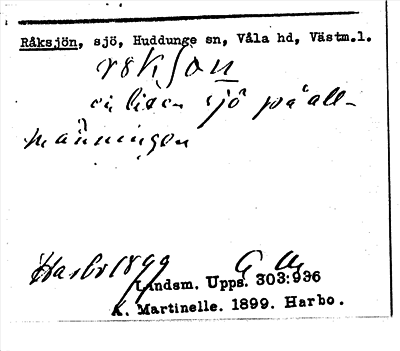 Råksjön, sjö, Huddunge sn, Våla hd, Västm.l.
en liten sjö på all-
männingen
Harbo 1899
Landsm. Upps. 303:936
A. Martinelle. 1899. Harbo.